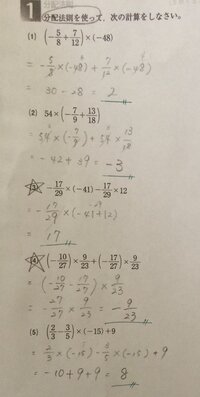 分配法則
1 分配法則を使って，次の計算をしなさい。
(1) (−5/8+7/12)×(−48)
= −5/8×(−48)+7/12×(−48)
= 30−28 = 2
(2) 54×(−7/9+13/18)
= 54×(−7/9)+54×13/18
= −42+39 = −3
(3) −17/29×(−41)−17/29×12
= −17/29×(−41+12)
= 17
(4) (−10/27)×9/23+(−17/27)×9/23
= (−10/27−17/27)×9/23
= −27/27×9/23 = −9/23
(5) (2/3−3/5)×(−15)+9
= 2/3×(−15)−3/5×(−15)+9
= −10+9+9 = 8